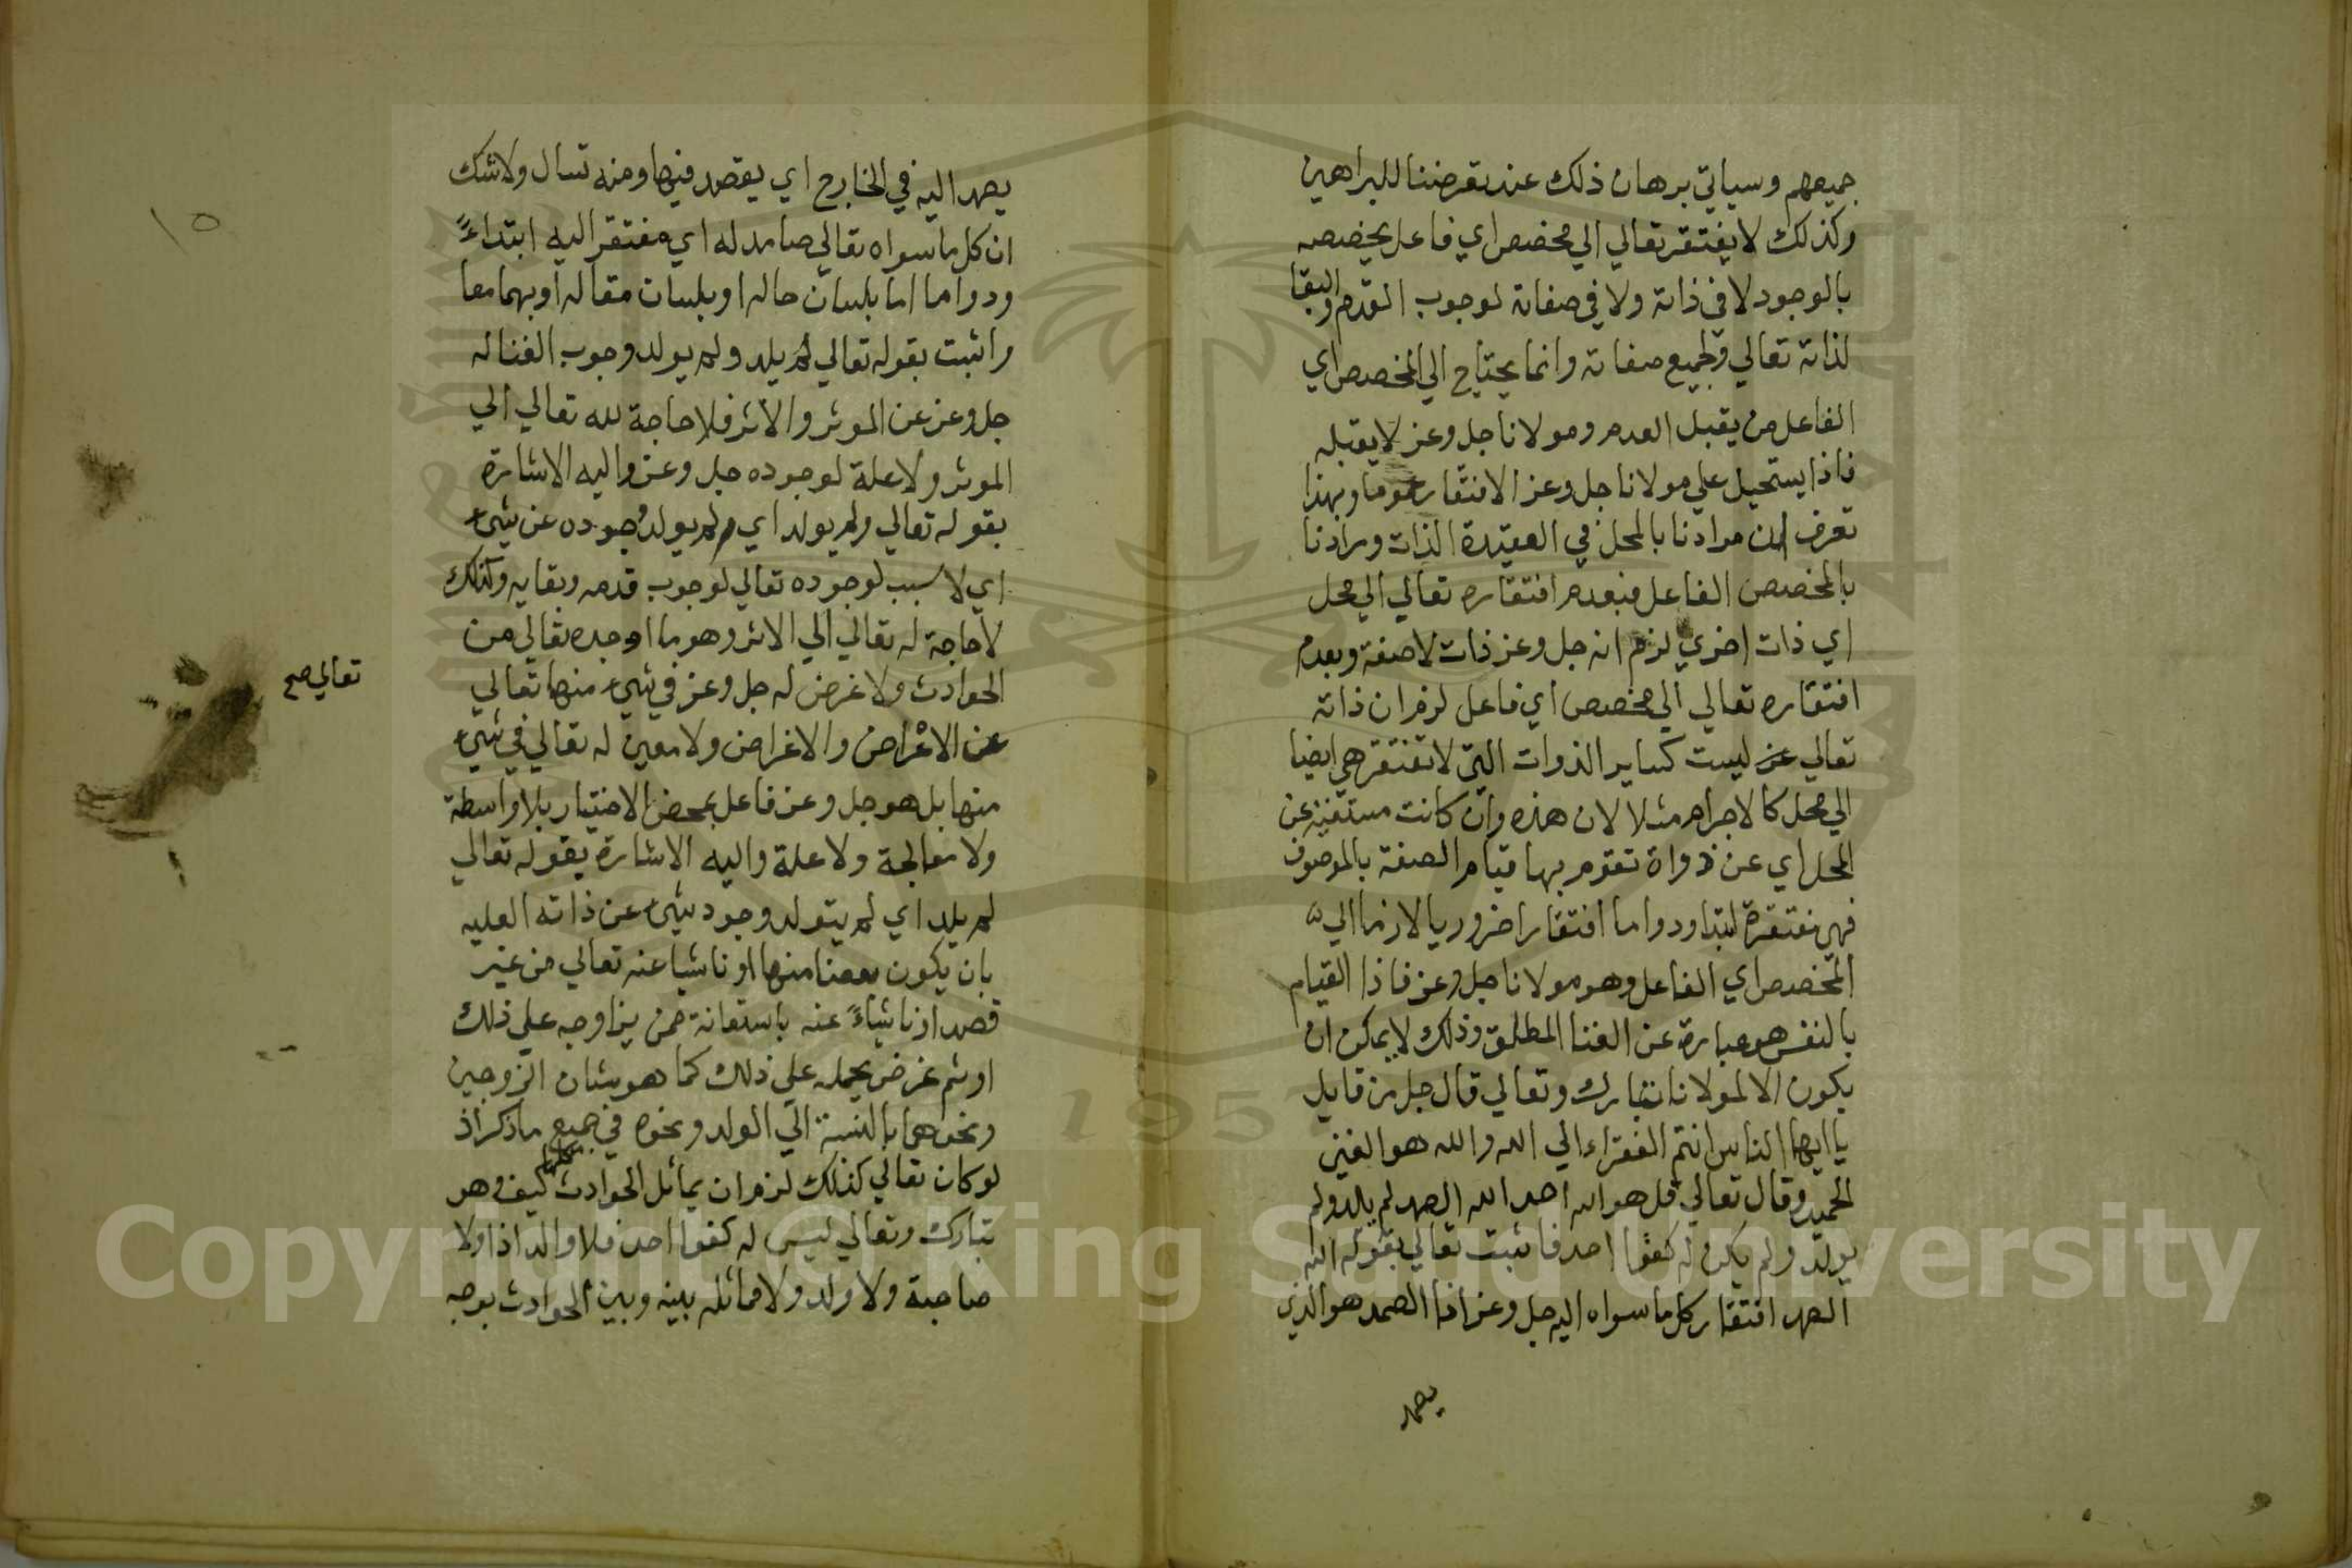 جميعهم وسياتي برهان ذلك عند تعرضنا للبراهين
وكذلك لا يفتقر تعالي الي مخصص اي فاعل يخصصه
بالوجود لا في ذاته ولا في صفاته لوجوب القدم والبقا
لذاته تعالي ولجميع صفاته وانما يحتاج الي المخصص اي
الفاعل من يقبل العدم ومولانا جل وعز لا يقبله
فاذا يستحيل علي مولانا جل وعز الافتقار عموما وبهذا
تعرف ان مرادنا بالمحل في العقيدة الذات ومرادنا
بالمخصص الفاعل فبعدم افتقاره تعالي الي محل
اي ذات اخري لزم انه جل وعز ذات لا صفة وبعدم
افتقاره تعالي الي مخصص اي فاعل لزم ان ذاته
تعالي عز ليست كساير الذوات التي لا تفتقر هي ايضا
الي محل كالاجرام مثلا لان هذه وان كانت مستغنية عن
المحل اي عن ذواة تقوم بها قيام الصفة بالموصوف
فهي مفتقرة ابتدا ودواما افتقارا ضروريا لازما الي
المخصص اي الفاعل وهو مولانا جل وعز فاذا القيام
بالنفس هو عبارة عن الغنا المطلق وذلك لا يمكن ان
يكون الا لمولانا تبارك وتعالي قال جل من قايل
يا ايها الناس انتم الفقراء الي الله والله هو الغني
الحميد وقال تعالي قل هو الله احد الله الصمد لم يلد ولم
يولد ولم يكن له كفوا احد فاثبت تعالي بقوله الله
الصمد افتقار كل ما سواه اليه جل وعز اذا الصمد هو الذي
يصمد
١٥
يصمد اليه في الخارج اي يقصد فيها ومنه تسال ولا شك
ان كل ما سواه تعالي صامد له اي مفتقر اليه ابتداءً
ودواما اما بلسان حاله او بلسان مقاله او بهما معا
واثبت بقوله تعالي لم يلد ولم يولد وجوب الغنا له
جل وعز عن الموثر والاثر فلا حاجة لله تعالي الي
الموثر ولا علة لوجوده جل وعز واليه الاشارة
بقوله تعالي ولم يولد اي ولم يولد وجوده عن شيء
اي لا سبب لوجوده تعالي لوجوب قدمه وبقايه وكذلك
لا حاجة له تعالي الي الاثر وهو ما اوجده تعالي من
الحوادث ولا غرض له جل وعز في شيء منها تعالي
تعالي صح
عن الاعراض والاغراض ولا معين له تعالي في شيء
منها بل هو جل وعز فاعل بمحض الاختيار بلا واسطة
ولا معالجة ولا علة واليه الاشارة بقوله تعالي
لم يلد اي لم يتولد وجود شيء عن ذاته العليه
بان يكون بعضا منها او ناشيا عنه تعالي من غير
قصد او ناشياءً عنه باستعانة ممن يزاوجه علي ذلك
او ثم غرض يحمله علي ذلك كما هو شان الزوجين
ونحوهما بالنسبة الي الولد ونحوه في جميع ما ذكر اذ
لو كان تعالي كذلك لزم ان يماثل الحوادث كيف وهو
تبارك وتعالي ليس له كفوا احد فلا والد اذا ولا
صاحبة ولا ولد ولا مماثله بينه وبين الحوادث بوجه